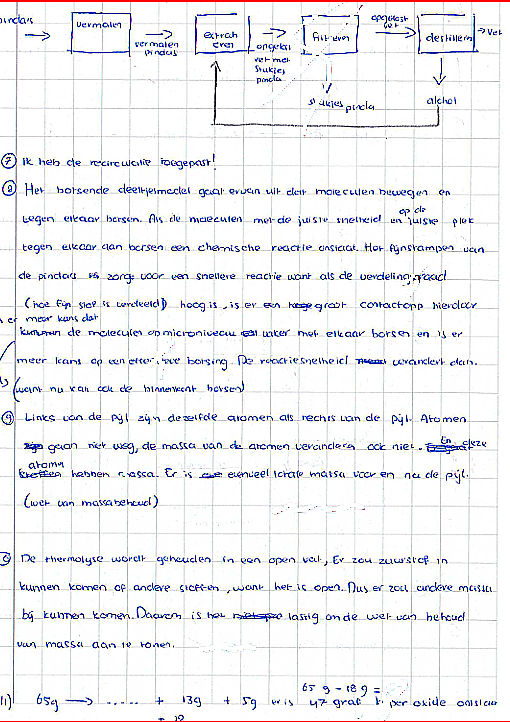 pindas
vermalen
extrah
eren
filtreren
opgelost
vet
destilleren
vet
vermalen
pindas
opgelost
vet met
stukjes
pinda
stukjes pinda
alchol
7 Ik heb de recirculatie toegepast!
8 Het botsende deeltjesmodel gaat ervan uit dat moleculen bewegen en
tegen elkaar botsen. Als de moleculen met de juiste snelheid en op de juiste plek
tegen elkaar aan botsen een chemische reactie onstaat. Het fijnstampen van
de pindas zorgt voor een snellere reactie want als de verdelingsgraad
(hoe fijn stof is verdeeld) hoog is, is er een groot contactopp hierdoor
er meer kans dat
de moleculen op microniveau vaker met elkaar botsen en is er
meer kans op een effectieve botsing. De reactiesnelheid verandert dan.
(want nu kan ook de binnenkant botsen)
9 Links van de pijl zijn dezelfde atomen als rechts van de pijl. Atomen
gaan niet weg, de massa van de atomen veranderen ook niet. En deze
atomen hebben massa. Er is evenveel totale massa voor en na de pijl.
(wet van massabehoud)
De thermolyse wordt gehouden in een open vat, Er zou zuurstof in
kunnen komen of andere stoffen, want het is open. Dus er zou andere massa
bij kunnen komen. Daarom is het lastig om de wet van behoud
van massa aan te tonen.
65 g - 18 g =
11) 65g → ..... + 13g + 5g er is 47 gram per oxide onstaan
+ 18